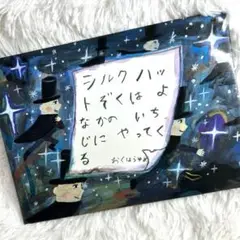 シルクハッ
トぞくは よ
なかの いち
じに やってく
る
おくはらゆめ